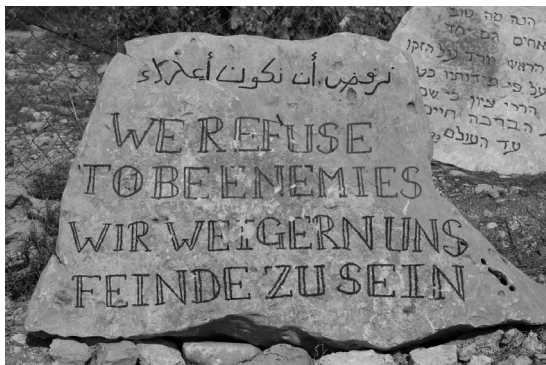 نرفض أن نكون أعداء
WE REFUSE
TO BE ENEMIES
WIR WEIGERN UNS
FEINDE ZU SEIN
הנה מה טוב
אחים גם יחד
הראש יורד על הזקן
על פי מידותיו
הררי ציון כי שם
הברכה חיים
עד העולם